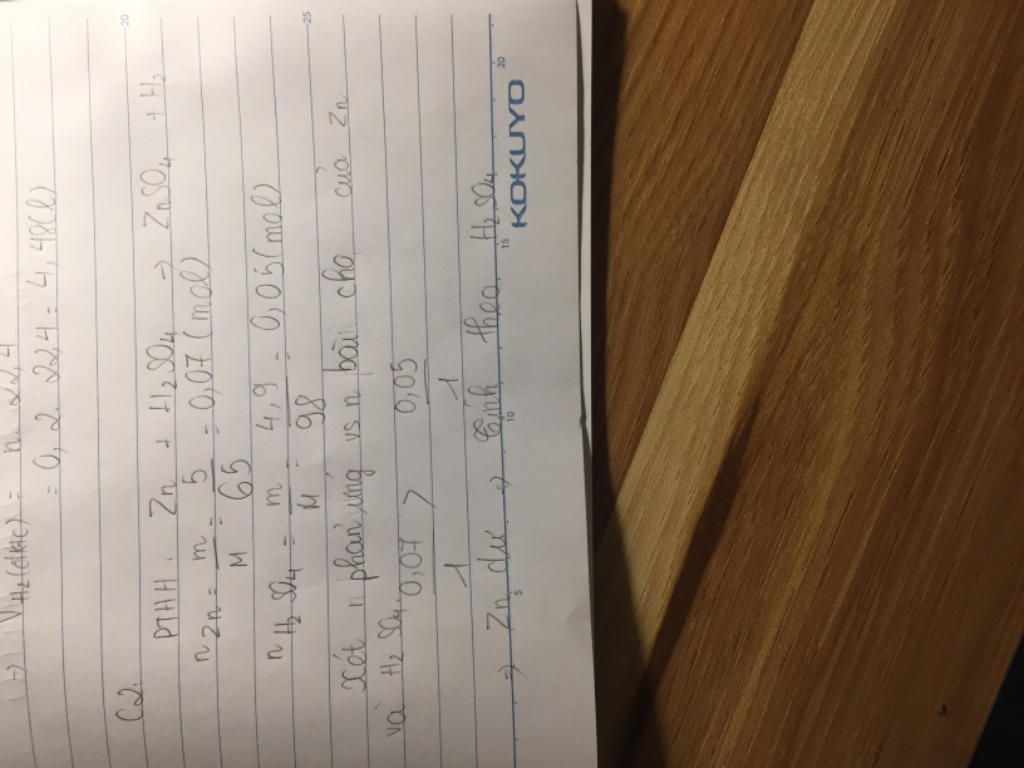 =) V H₂(đktc) = n. 22,4
= 0,2. 22,4 = 4,48(l)
C2.
PTHH: Zn + H₂SO₄ -> ZnSO₄ + H₂
n Zn = m/M = 5/65 = 0,07 (mol)
n H₂SO₄ = m/M = 4,9/98 = 0,05 (mol)
Xét n phản ứng vs n bài cho của Zn
và H₂SO₄
0,07/1 > 0,05/1
=) Zn dư =) Tính theo H₂SO₄
5 10 15 20
20
25
KOKUYO